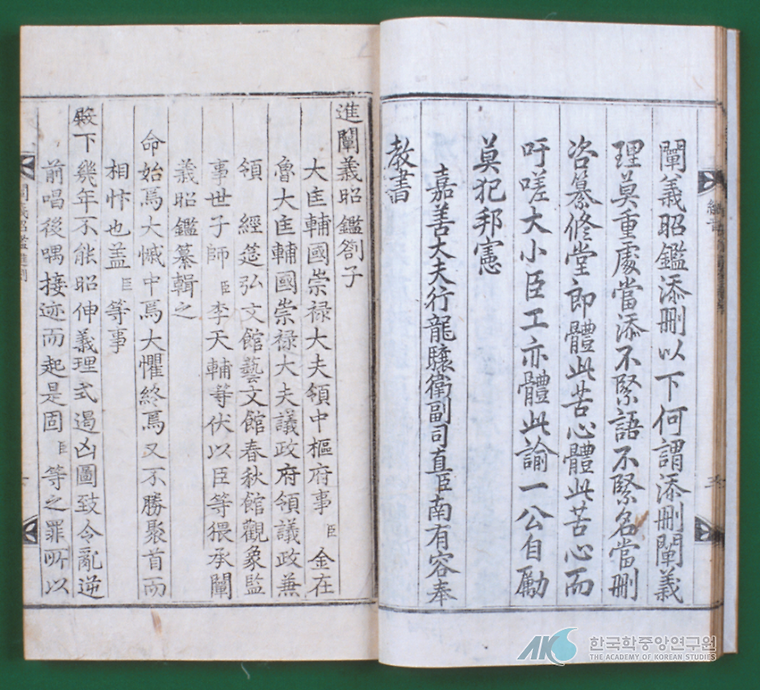 闡義昭鑑添刪以下何謂添刪闡義
理莫重處當添不緊語不緊名當刪
咨纂修堂郎體此苦心體此苦心而
吁嗟大小臣工亦體此諭一公自勵
莫犯邦憲
嘉善大夫行龍驤衛副司直臣南有容奉
敎書
進闡義昭鑑劄子
大匡輔國崇祿大夫領中樞府事臣金在
魯大匡輔國崇祿大夫議政府領議政兼
領 經筵弘文館藝文館春秋館觀象監
事世子師臣李天輔等伏以臣等猥承闡
義昭鑑纂輯之
命始焉大慽中焉大懼終焉又不勝聚首而
相忭也盖臣等事
殿下幾年不能昭伸義理式遏凶圖致令亂逆
前唱後喁接迹而起是固臣等之罪所以
闡義昭鑑進劄
한국학중앙연구원
THE ACADEMY OF KOREAN STUDIES